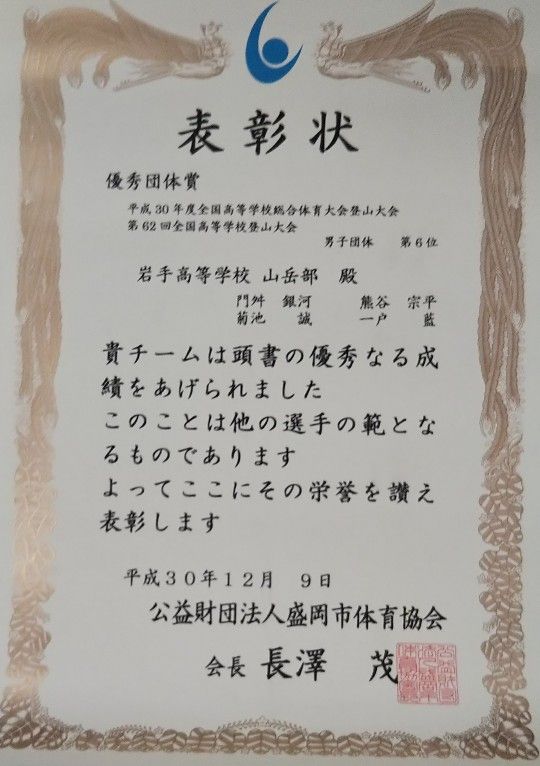 表彰状
優秀団体賞
平成30年度全国高等学校総合体育大会登山大会
第62回全国高等学校登山大会
男子団体 第6位
岩手高等学校 山岳部 殿
門舛 銀河 熊谷 宗平
菊池 誠 一戸 藍
貴チームは頭書の優秀なる成
績をあげられました
このことは他の選手の範とな
るものであります
よってここにその栄誉を讃え
表彰します
平成30年12月 9日
公益財団法人盛岡市体育協会
会長 長澤 茂